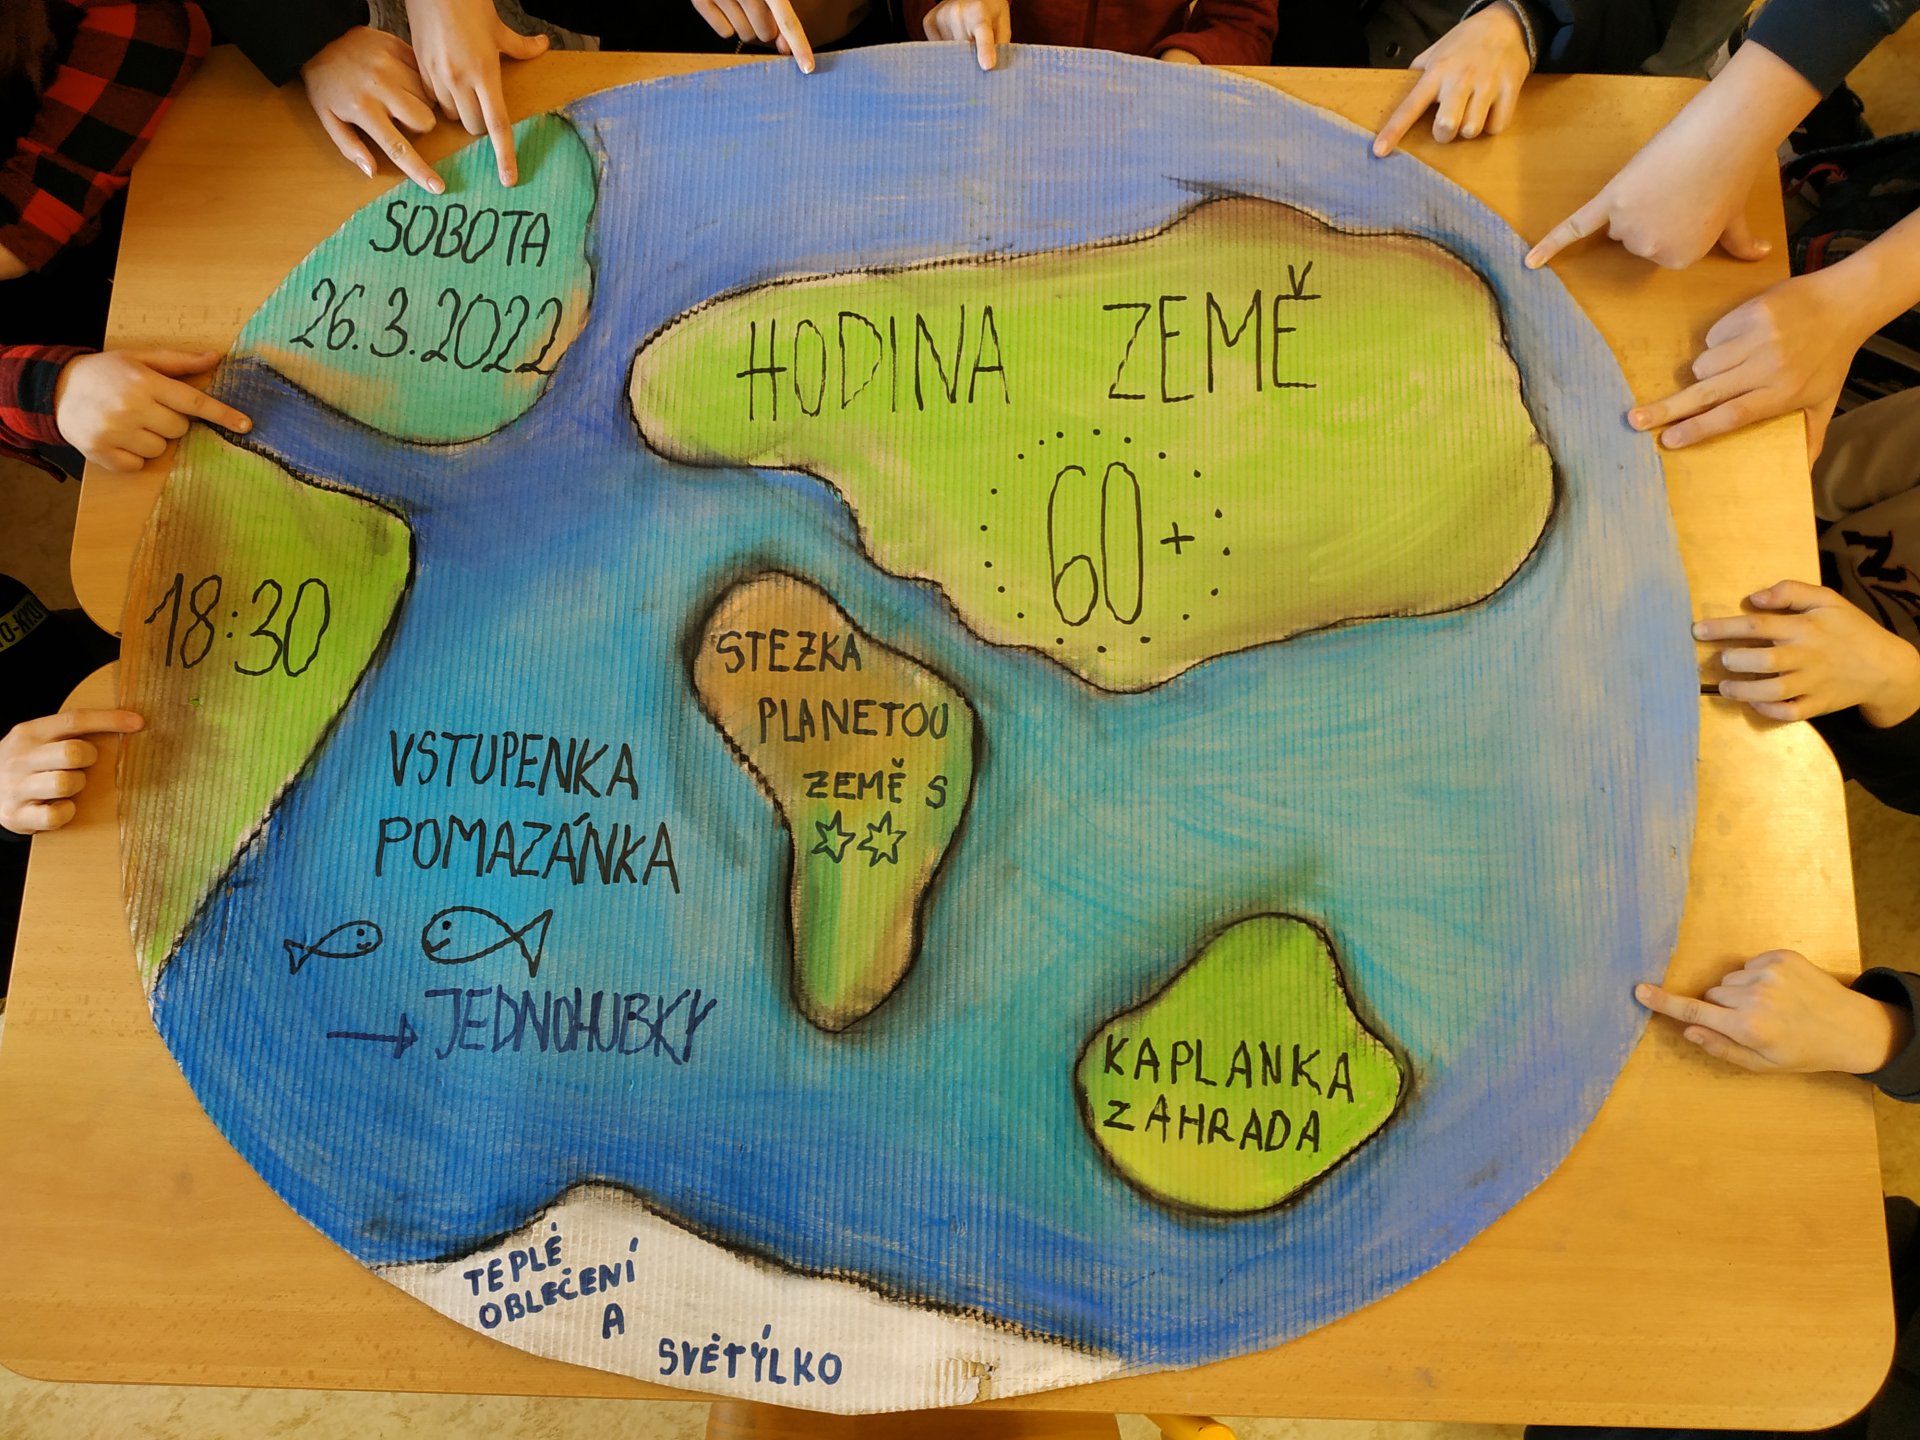 SOBOTA
26.3.2022
HODINA ZEMĚ
60+
18:30
STEZKA
PLANETOU
ZEMĚ S
VSTUPENKA
POMAZÁNKA
JEDNOHUBKY
KAPLANKA
ZAHRADA
TEPLÉ
OBLEČENÍ
A
SVĚTÝLKO